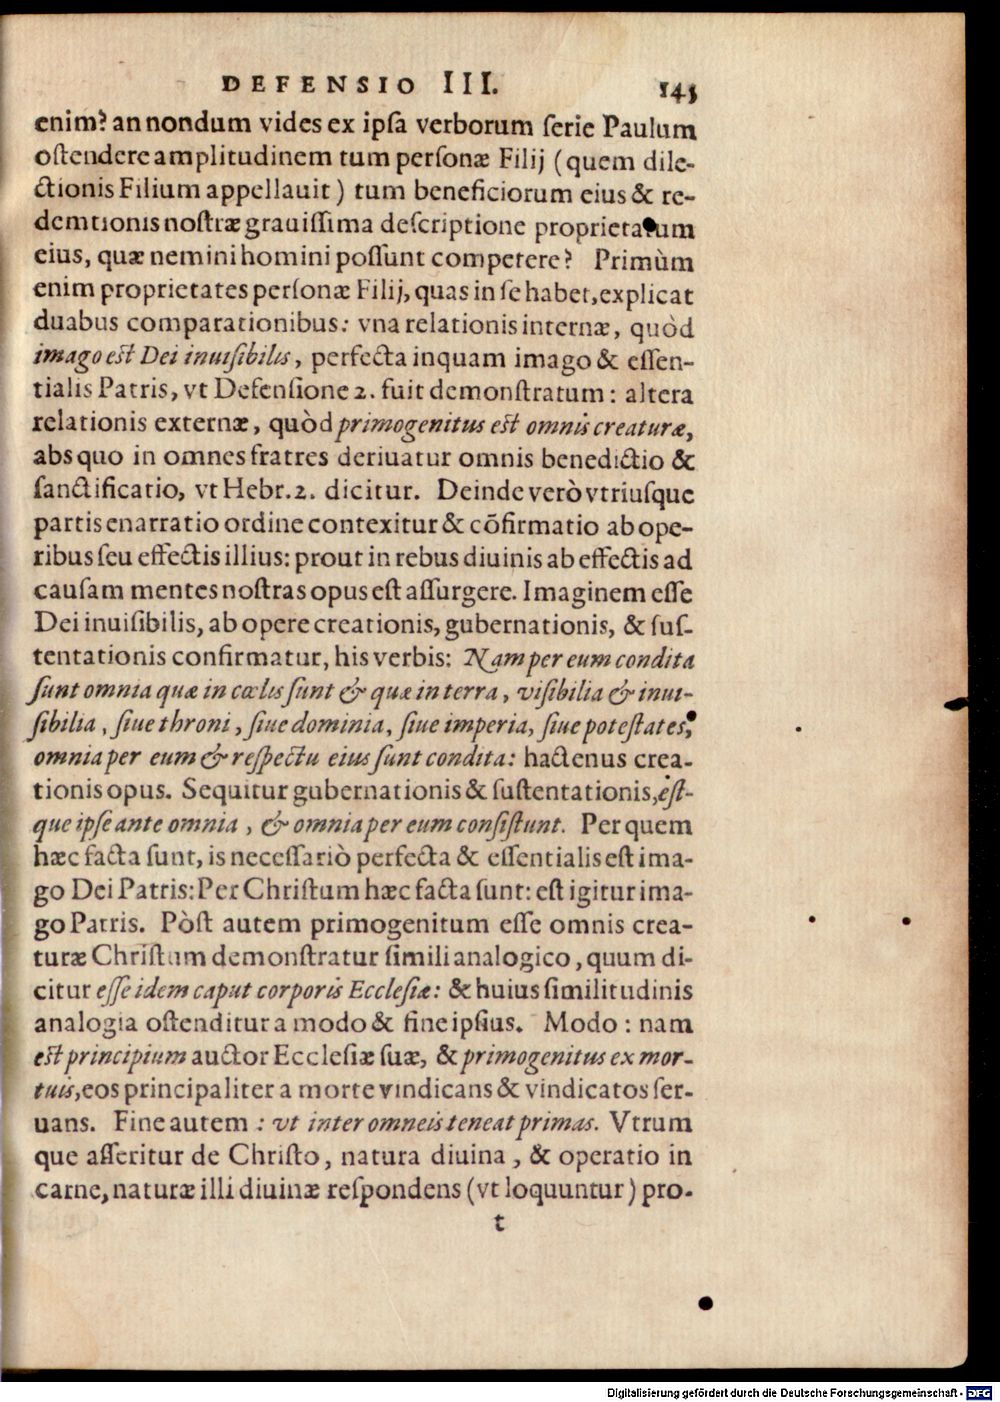 DEFENSIO III. 145
enim? an nondum vides ex ipſa verborum ſerie Paulum
oſtendere amplitudinem tum perſonæ Filij (quem dile-
ctionis Filium appellauit) tum beneficiorum eius & re-
demtionis noſtræ grauiſſima deſcriptione proprietatum
eius, quæ nemini homini poſſunt competere? Primùm
enim proprietates perſonæ Filij, quas in ſe habet, explicat
duabus comparationibus: vna relationis internæ, quòd
imago est Dei inuiſibilis, perfecta inquam imago & eſſen-
tialis Patris, vt Defenſione 2. fuit demonſtratum: altera
relationis externæ, quòd primogenitus est omnis creaturæ,
abs quo in omnes fratres deriuatur omnis benedictio &
ſanctificatio, vt Hebr. 2. dicitur. Deinde verò vtriuſque
partis enarratio ordine contexitur & cōfirmatio ab ope-
ribus ſeu effectis illius: prout in rebus diuinis ab effectis ad
cauſam mentes noſtras opus eſt aſſurgere. Imaginem eſſe
Dei inuiſibilis, ab opere creationis, gubernationis, & ſuſ-
tentationis confirmatur, his verbis: Nam per eum condita
ſunt omnia quæ in cœlis ſunt & quæ in terra, viſibilia & inui-
ſibilia, ſiue throni, ſiue dominia, ſiue imperia, ſiue poteſtates,
omnia per eum & reſpectu eius ſunt condita: hactenus crea-
tionis opus. Sequitur gubernationis & ſuſtentationis, eſt-
que ipſe ante omnia, & omnia per eum conſiſtunt. Per quem
hæc facta ſunt, is neceſſariò perfecta & eſſentialis eſt ima-
go Dei Patris: Per Chriſtum hæc facta ſunt: eſt igitur ima-
go Patris. Pòſt autem primogenitum eſſe omnis crea-
turæ Chriſtum demonſtratur ſimili analogico, quum di-
citur eſſe idem caput corporis Eccleſiæ: & huius ſimilitudinis
analogia oſtenditur a modo & fine ipſius. Modo: nam
est principium auctor Eccleſiæ ſuæ, & primogenitus ex mor-
tuis, eos principaliter a morte vindicans & vindicatos ſer-
uans. Fine autem: vt inter omneis teneat primas. Vtrum
que aſſeritur de Chriſto, natura diuina, & operatio in
carne, naturæ illi diuinæ reſpondens (vt loquuntur) pro-
t
Digitalisierung gefördert durch die Deutsche Forschungsgemeinschaft - DFG